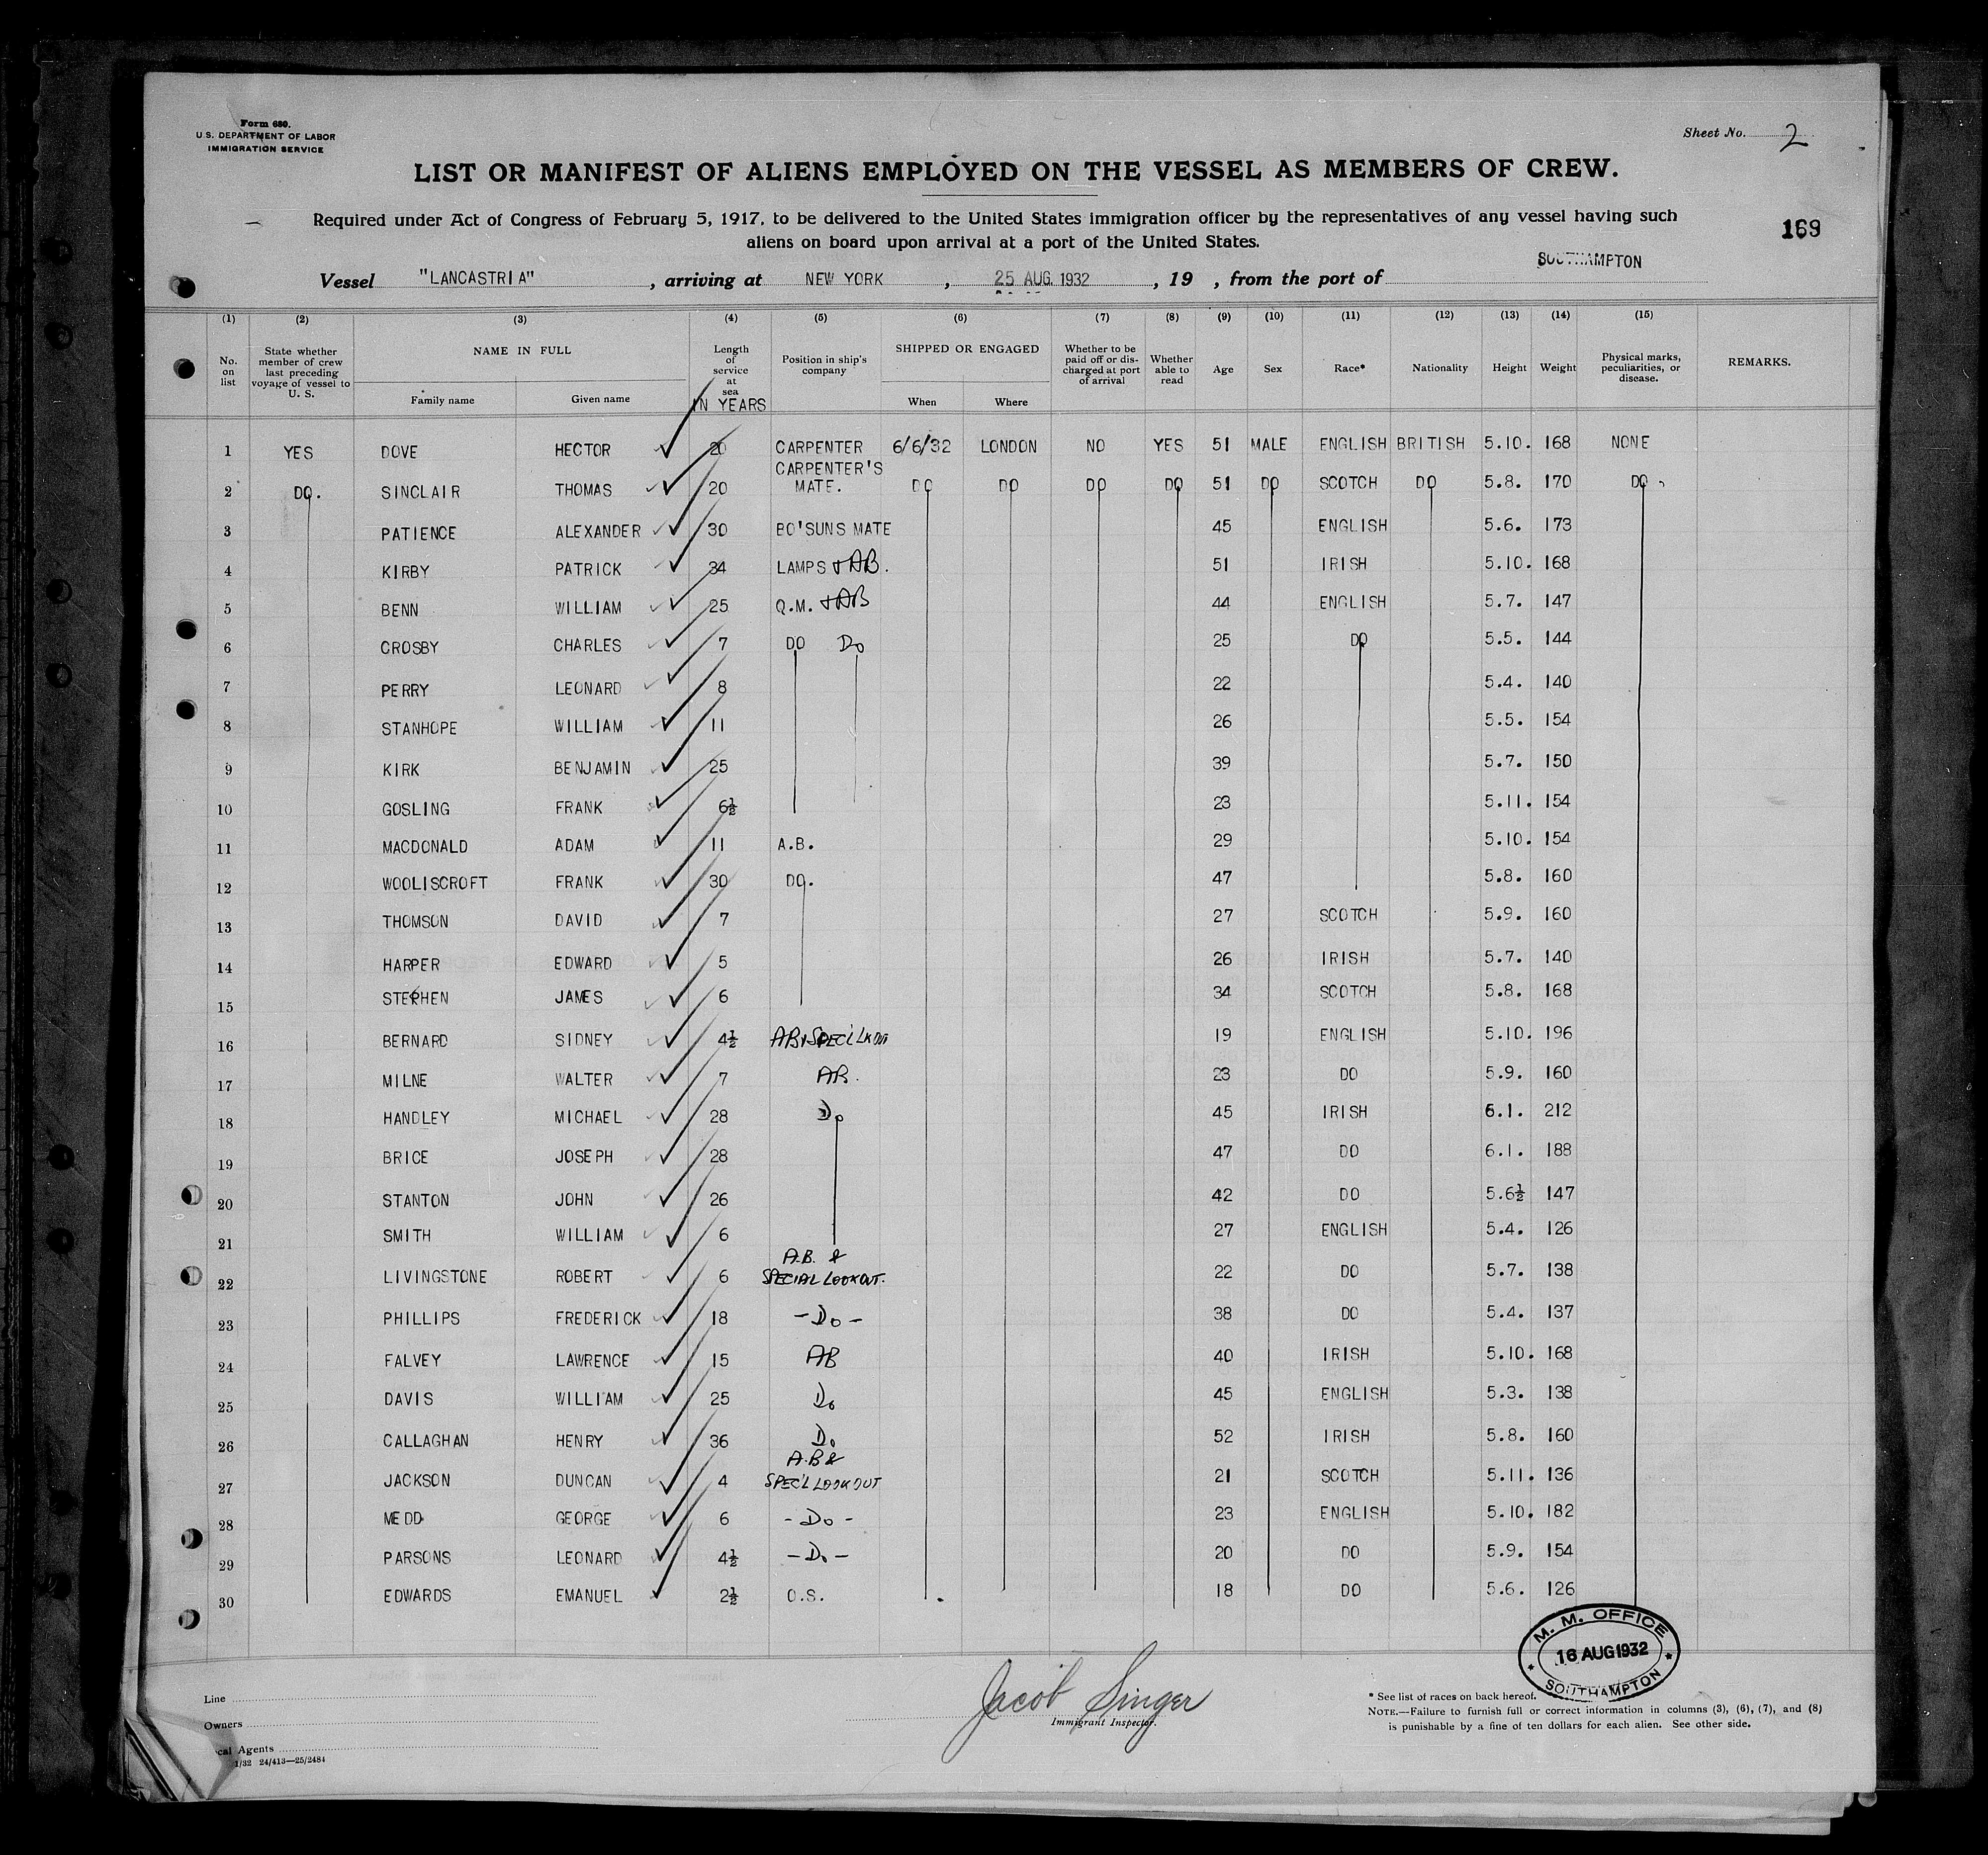 Form 680.
U.S. DEPARTMENT OF LABOR
IMMIGRATION SERVICE
Sheet No. 2
LIST OR MANIFEST OF ALIENS EMPLOYED ON THE VESSEL AS MEMBERS OF CREW.
Required under Act of Congress of February 5, 1917, to be delivered to the United States immigration officer by the representatives of any vessel having such
aliens on board upon arrival at a port of the United States.
169
Vessel "LANCASTRIA", arriving at NEW YORK, 25 AUG. 1932, 19 , from the port of SOUTHAMPTON
(1) (2) (3) (4) (5) (6) (7) (8) (9) (10) (11) (12) (13) (14) (15)
No. on list State whether member of crew last preceding voyage of vessel to U. S. NAME IN FULL Length of service at sea IN YEARS Position in ship's company SHIPPED OR ENGAGED Whether to be paid off or discharged at port of arrival Whether able to read Age Sex Race* Nationality Height Weight Physical marks, peculiarities, or disease. REMARKS.
Family name Given name When Where
1 YES DOVE HECTOR 20 CARPENTER 6/6/32 LONDON NO YES 51 MALE ENGLISH BRITISH 5.10. 168 NONE
2 DO. SINCLAIR THOMAS 20 CARPENTER'S MATE. DO DO DO DO 51 DO SCOTCH DO 5.8. 170 DO
3 PATIENCE ALEXANDER 30 BO'SUNS MATE 45 ENGLISH 5.6. 173
4 KIRBY PATRICK 34 LAMPS + AB. 51 IRISH 5.10. 168
5 BENN WILLIAM 25 Q.M. + AB 44 ENGLISH 5.7. 147
6 CROSBY CHARLES 7 DO Do 25 DO 5.5. 144
7 PERRY LEONARD 8 22 5.4. 140
8 STANHOPE WILLIAM 11 26 5.5. 154
9 KIRK BENJAMIN 25 39 5.7. 150
10 GOSLING FRANK 6½ 23 5.11. 154
11 MACDONALD ADAM 11 A.B. 29 5.10. 154
12 WOOLISCROFT FRANK 30 DO. 47 5.8. 160
13 THOMSON DAVID 7 27 SCOTCH 5.9. 160
14 HARPER EDWARD 5 26 IRISH 5.7. 140
15 STEPHEN JAMES 6 34 SCOTCH 5.8. 168
16 BERNARD SIDNEY 4½ AB + SPEC'L LK OUT 19 ENGLISH 5.10. 196
17 MILNE WALTER 7 AB. 23 DO 5.9. 160
18 HANDLEY MICHAEL 28 Do 45 IRISH 6.1. 212
19 BRICE JOSEPH 28 47 DO 6.1. 188
20 STANTON JOHN 26 42 DO 5.6½ 147
21 SMITH WILLIAM 6 27 ENGLISH 5.4. 126
22 LIVINGSTONE ROBERT 6 A.B. & SPECIAL LOOKOUT. 22 DO 5.7. 138
23 PHILLIPS FREDERICK 18 - Do - 38 DO 5.4. 137
24 FALVEY LAWRENCE 15 AB 40 IRISH 5.10. 168
25 DAVIS WILLIAM 25 Do 45 ENGLISH 5.3. 138
26 CALLAGHAN HENRY 36 Do 52 IRISH 5.8. 160
27 JACKSON DUNCAN 4 A.B & SPEC'L LOOKOUT 21 SCOTCH 5.11. 136
28 MEDD GEORGE 6 - Do - 23 ENGLISH 5.10. 182
29 PARSONS LEONARD 4½ - Do - 20 DO 5.9. 154
30 EDWARDS EMANUEL 2½ O.S. 18 DO 5.6. 126
M. M. OFFICE
16 AUG 1932
SOUTHAMPTON
Line
Owners
cal Agents
1/32 24/413—25/2484
Jacob Singer
Immigrant Inspector.
* See list of races on back hereof.
NOTE.—Failure to furnish full or correct information in columns (3), (6), (7), and (8)
is punishable by a fine of ten dollars for each alien. See other side.